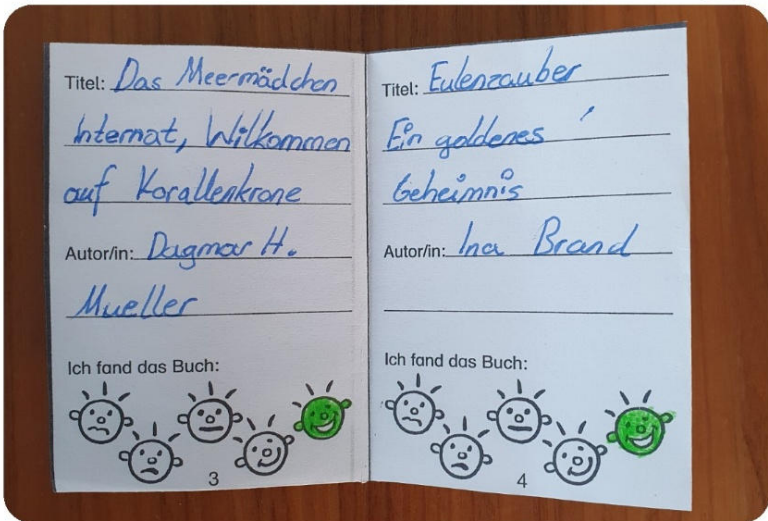 Titel: Das Meermädchen
Internat, Wilkommen
auf Korallenkrone
Autor/in: Dagmar H.
Mueller
Ich fand das Buch:
3
Titel: Eulenzauber
Ein goldenes
Geheimnis
Autor/in: Ina Brand
Ich fand das Buch:
4